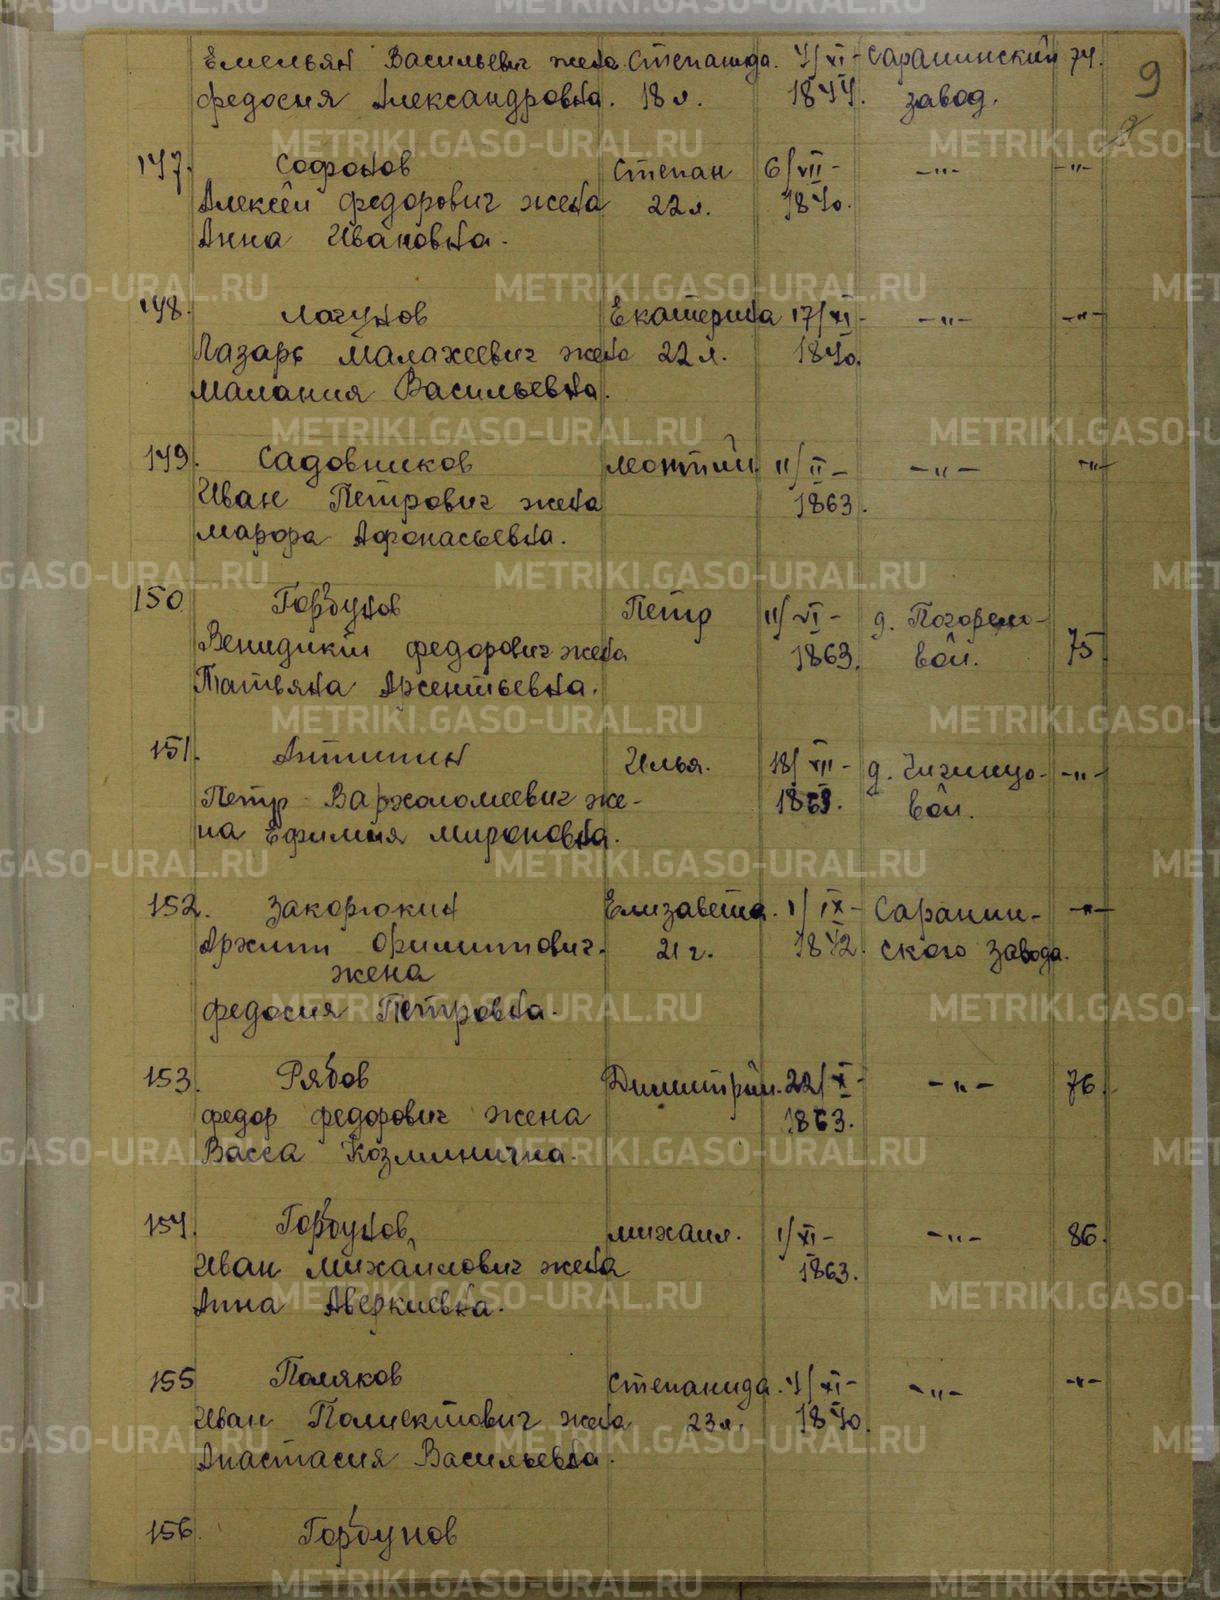 9
Емельян Васильевич жена Степанида. 4/XI- Саранинский 74.
федосия Александровна. 18 л. 1844. завод.
147. Софонов Степан 6/VII- -"- -"-
Алексей федорович жена 22 л. 1840.
Анна Ивановна.
148. Лагунов Екатерина 17/XI- -"- -"-
Лазарь Малахеевич жена 22 л. 1840.
Малания Васильевна.
149. Садовников Леонтий. 11/II- -"- -"-
Иван Петрович жена 1863.
Марфа Афонасьевна.
150 Горбунов Петр 11/VI- д. Погорело-
Венидикт федорович жена 1863. вой. 75.
Татьяна Арсентьевна.
151. Антипин Илья. 18/VII- д. Чигинцо- -"-
Петр Варфоломеевич же- 1863. вой.
на Ефимия Мироновна.
152. Закорюкин Елизавета. 1/IX- Саранин- -"-
Архипп Филиппович. 21 г. 1842. ского завода.
жена
федосия Петровна.
153. Рябов Димитрий. 22/X- -"- 76.
федор федорович жена 1863.
Васса Козминична.
154. Горбунов, михаил. 1/XI- -"- 86.
Иван Михаилович жена 1863.
Анна Аверкиевна.
155 Поляков Степанида. 4/XI- -"- -"-
Иван Полиектович жена 23 л. 1840.
Анастасия Васильевна.
156. Горбунов
METRIKI.GASO-URAL.RU